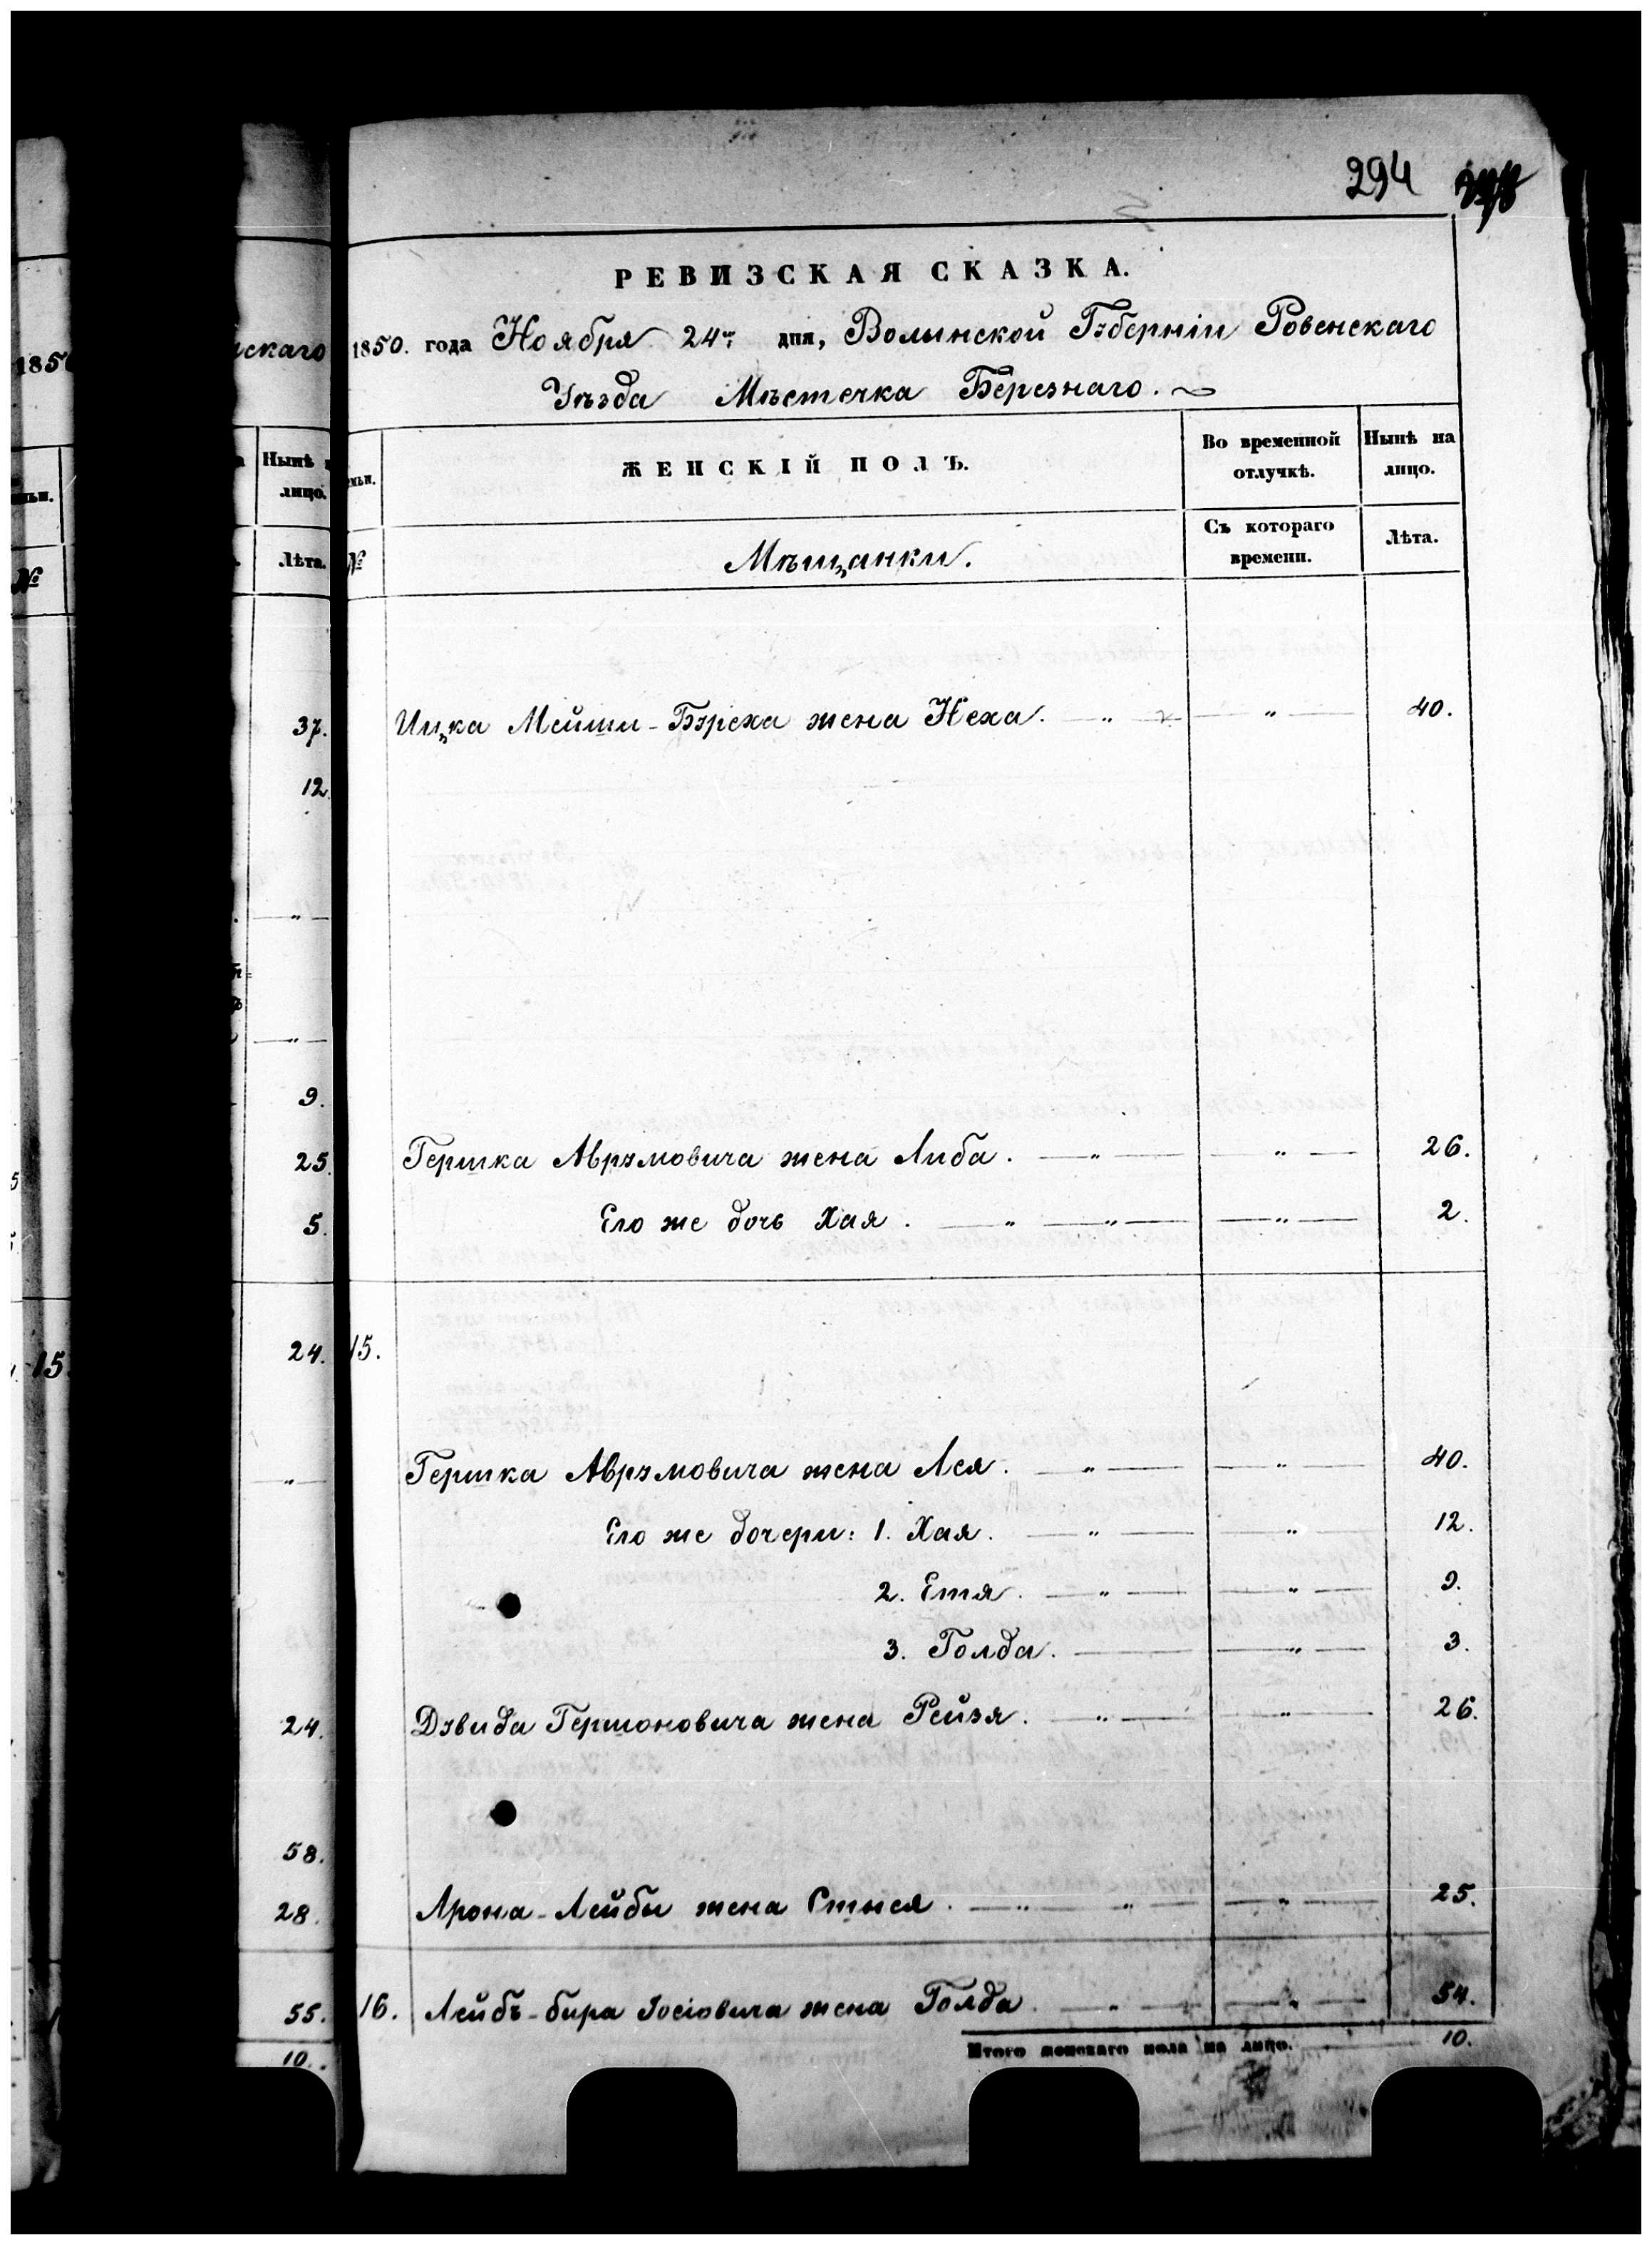 294
РЕВИЗСКАЯ СКАЗКА.
1850. года Ноября 24го дня, Волынской Губерніи Ровенскаго
Уѣзда Мѣстечка Березнаго.
ЖЕНСКІЙ ПОЛЪ.
Во временной отлучкѣ.
Нынѣ на лицо.
№
Мѣщанки.
Съ котораго времени.
Лѣта.
Ицка Мейши-Буреха жена Неха. — „ — „ — 40.
Гершка Аврумовича жена Либа. — „ — „ — 26.
Его же дочь Хая. — „ — „ — „ — 2.
15.
Гершка Аврумовича жена Лея. — „ — „ — 40.
Его же дочери: 1. Хая. — „ — „ 12.
2. Етя. — „ — „ — 9.
3. Голда. — „ — 3.
Дувида Гершоновича жена Рейзя. — „ — „ — 26.
Арона-Лейбы жена Стыся. — „ — „ — „ — 25.
16. Лейбъ-бира Іосіовича жена Голда. — „ — „ — 54.
Итого женскаго пола на лицо. 10.
1850
№
15
скаго
Нынѣ
лицо.
Лѣта.
37.
12
„
„
9.
25.
5.
24.
„
24.
58.
28.
55.
10.